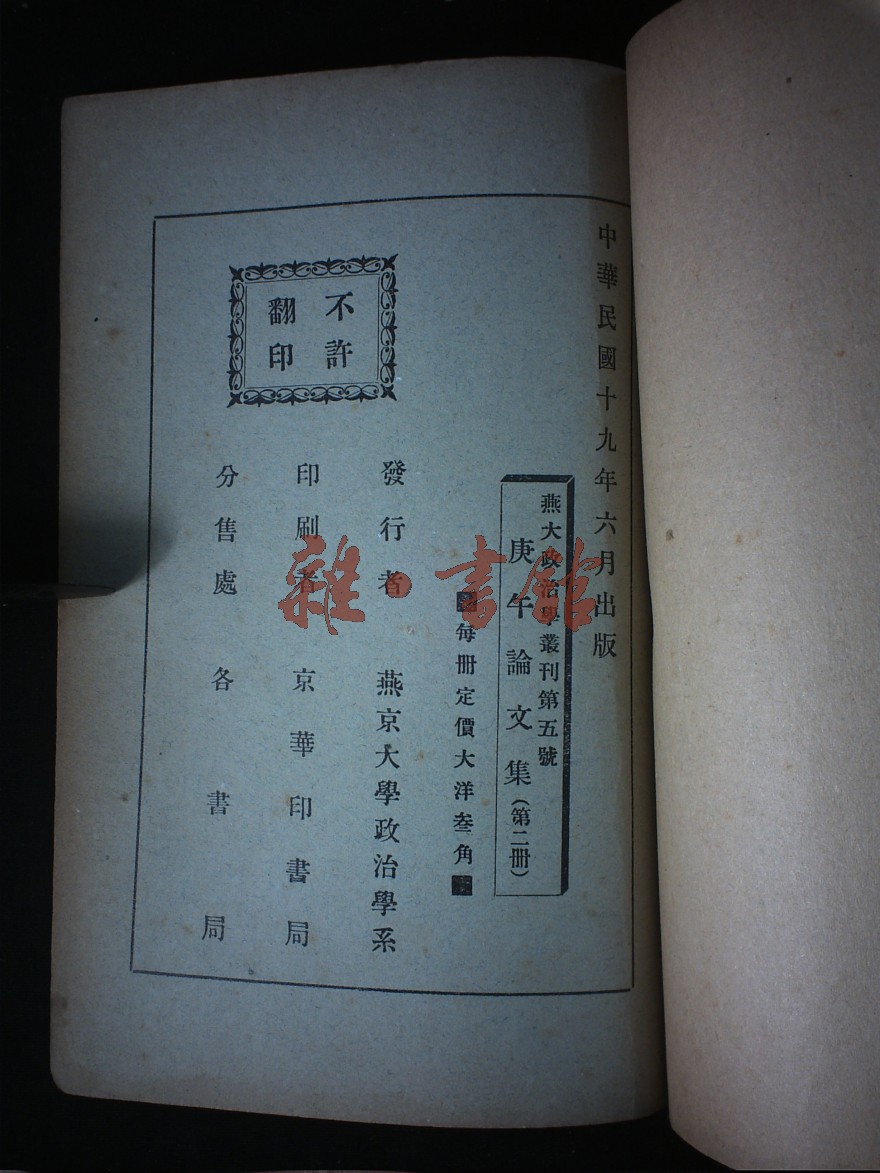 中華民國十九年六月出版
燕大政治學叢刊第五號
庚午論文集（第二册）
每册定價大洋叁角
發行者 燕京大學政治學系
印刷者 京華印書局
分售處 各書局
不許
翻印
雜·書館